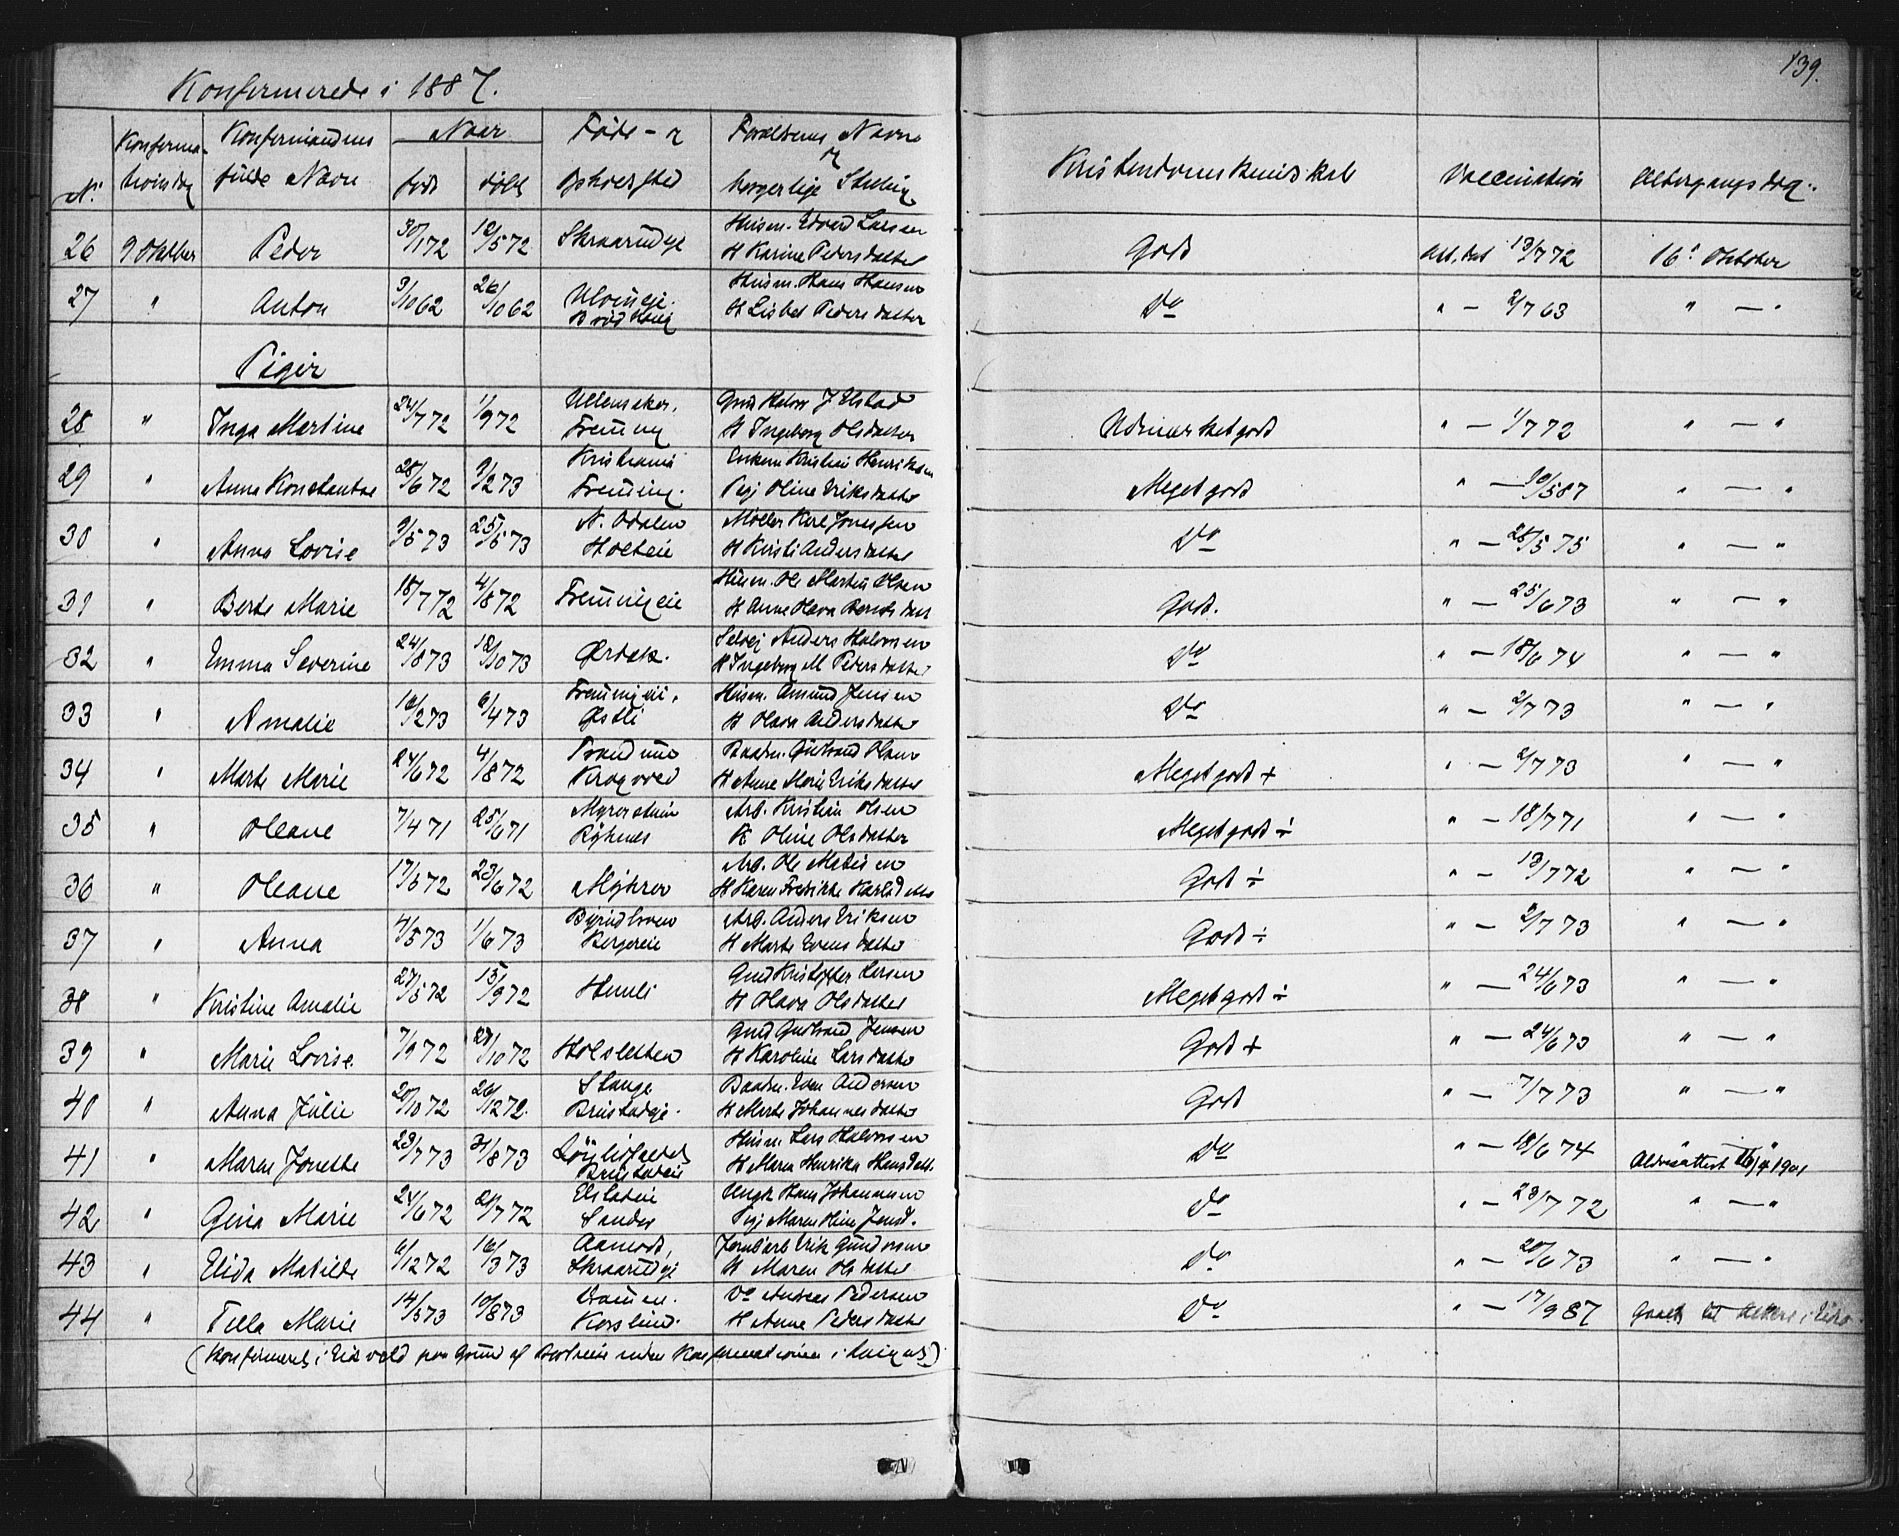 139.
Konfirmerede i 1887.
N. Konfirmationsdag Konfirmandens fulde Navn Naar født døbt Føde- og Bopælssted Forældrenes Navn og borgerlige Stilling Kristendomskundskab Vaccination Altergangsdag
26 9 Oktober Peder 30/1 72 12/5 72 Skraarudeje Husm. Edvard Larsen H Karine Pedersdatter Godt Att. dat 13/7 72 16 Oktober
27 " Anton 3/10 62 26/10 62 Husm. Hans Hansen H Lisbet Pedersdatter Do " — 2/7 63 " — "
Piger
28 " Inga Martine 24/7 72 1/9 72 Ullensaker. Frenning H Ingeborg Olsdatter Udmærket godt " — 1/7 72 " — "
29 " Anna Konstantse 28/6 72 9/2 73 Kristiania Frenning. Enkem Kristian Henriksen Pige Oline Eriksdatter Meget godt " — 10/5 87 " — "
30 " Anna Lovise 9/5 73 25/5 73 N. Odalen Holteie Møller Karl Jonessen H Kirsti Andersdatter Do " — 26/5 75 " — "
31 " Berte Marie 18/7 72 4/8 72 Frenningeie Husm. Ole Martin Olsen H Anne Olava Berntsdatt Godt. " — 25/6 73 " — "
32 " Emma Severine 24/8 73 12/10 73 Selvej Anders Halvorsen H Ingeborg M Pedersdatter Do " — 18/6 74 " — "
33 " Amalie 16/2 73 6/4 73 Frenningeie. Østli Husm. Amund Jensen H Olava Andersdatter Do " — 2/7 73 " — "
34 " Marte Marie 24/6 72 4/8 72 Trandum Krogvold Baadsm. Gulbrand Olsen H Anne Marie Eriksdatter Meget godt + " — 2/7 73 " — "
35 " Oleane 7/4 71 25/6 71 Arb. Kristian Olsen H Oline Olsdatter Meget godt ÷ " — 18/7 71 " — "
36 " Oleane 17/5 72 23/6 72 Arb. Ole Matisen H Karen Fredrikke Karlsdatter Godt ÷ " — 13/7 72 " — "
37 " Anna 4/5 73 1/6 73 Bergereie Arb. Anders Eriksen H Marte Evensdatter Godt ÷ " — 2/7 73 " — "
38 " Kristine Amalie 27/5 72 15/9 72 Humli Gmd Kristoffer Larsen H Olava Olsdatter Meget godt ÷ " — 24/6 73 " — "
39 " Marie Lovise. 7/9 72 27/10 72 Holsletten Gmd Gudbrand Jensen H Karoline Larsdatter Godt + " — 24/6 73 " — "
40 " Anna Julie 20/10 72 26/12 72. Stange Brustadeje. Baadsm. Even Andersen H Marte Johannesdatter Godt " — 7/7 73 " — "
41 " Maren Jonette 23/7 73 31/8 73 Brustadeie Husm Lars Halvorsen H Maren Henrikka Hansdatt. Do " — 18/6 74 " — " Aldersattest 16/4 1901
42 " Gina Marie 24/6 72 21/7 72 Elstadeie Sander Ungk Hans Johannesen Pige Maren Oline Jensd. Do " — 23/7 72 " — "
43 " Elida Matilde 6/12 72 16/3 73 Aamodt, Skraarudeje Jernbarb Erik Gundersen H Maren Olsdatter Do " — 20/6 73 " — "
44 " Tilla Marie 14/5 73 10/8 73 Korslund. Do Andreas Pedersen H Anne Pedersdatter Do " — 17/9 87 Gaaet til Alters i Eidsv.
(Konfirmeret i Eidsvold paa Grund af Bortreise under Konfirmationen i Langset)